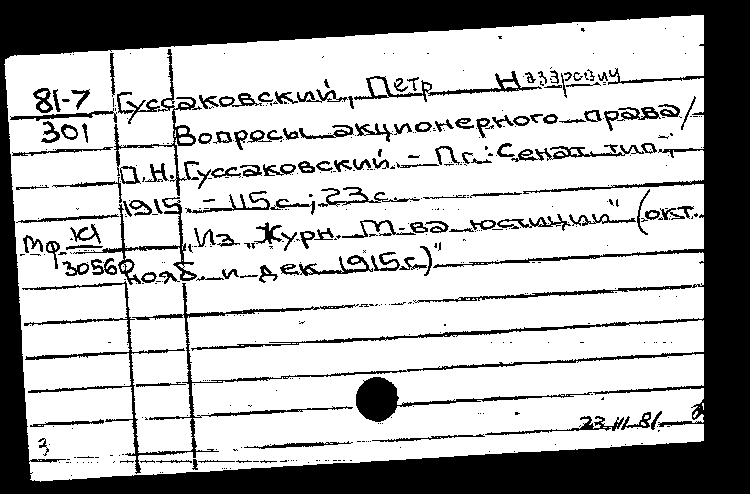 81-7
301
Гуссаковский, Петр Назарович
Вопросы акционерного права/
П.Н. Гуссаковский. - Пг.: Сенат. тип.,
1915. - 115 с.; 23 с.
Мф К1
30560
„Из „Журн. М-ва юстиции" (окт.
нояб. и дек. 1915 г.)"
23.III.81
3